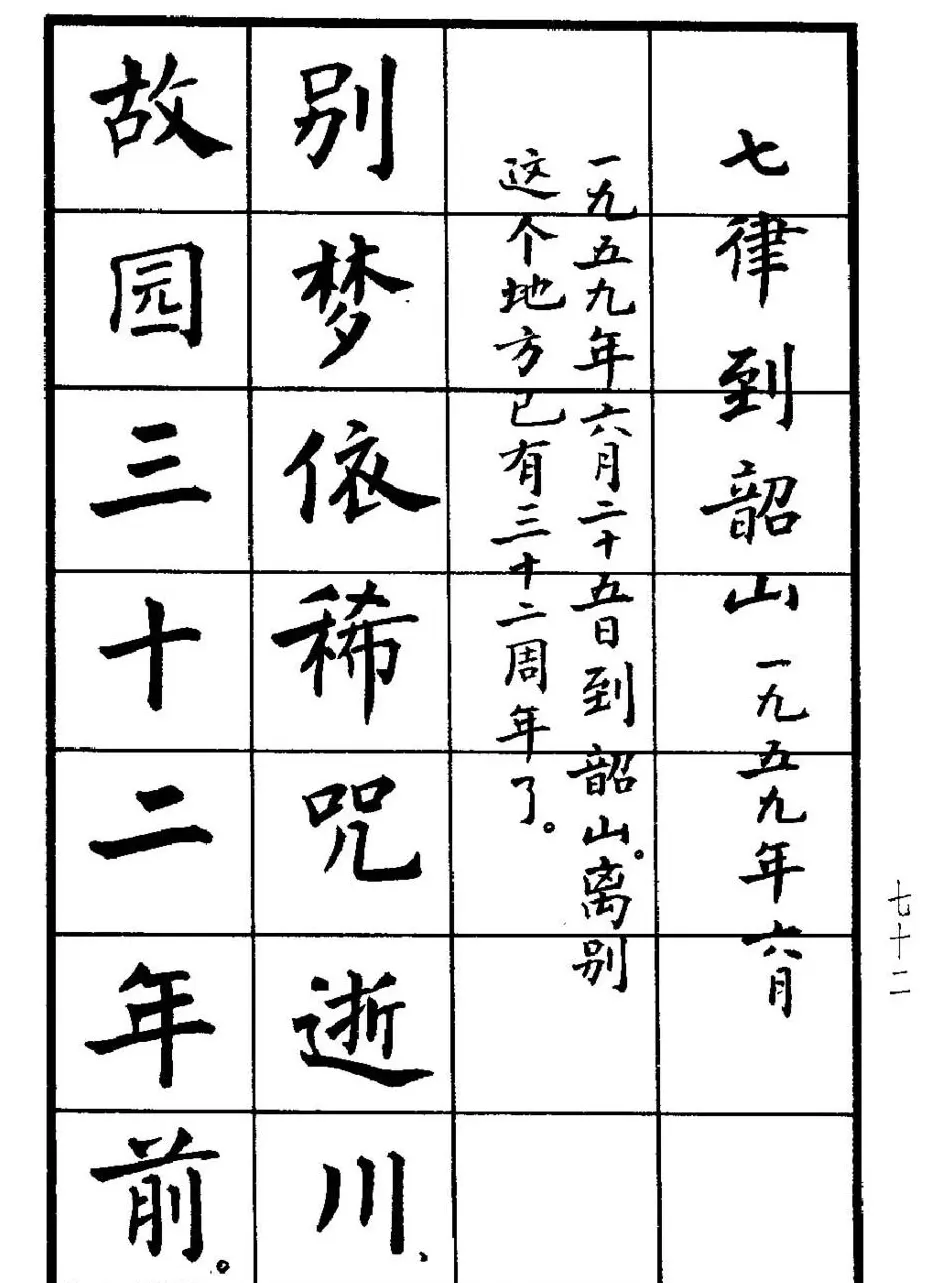 七律到韶山 一九五九年六月
一九五九年六月二十五日到韶山。离别
这个地方已有三十二周年了。
别梦依稀咒逝川、
故园三十二年前。
七十二